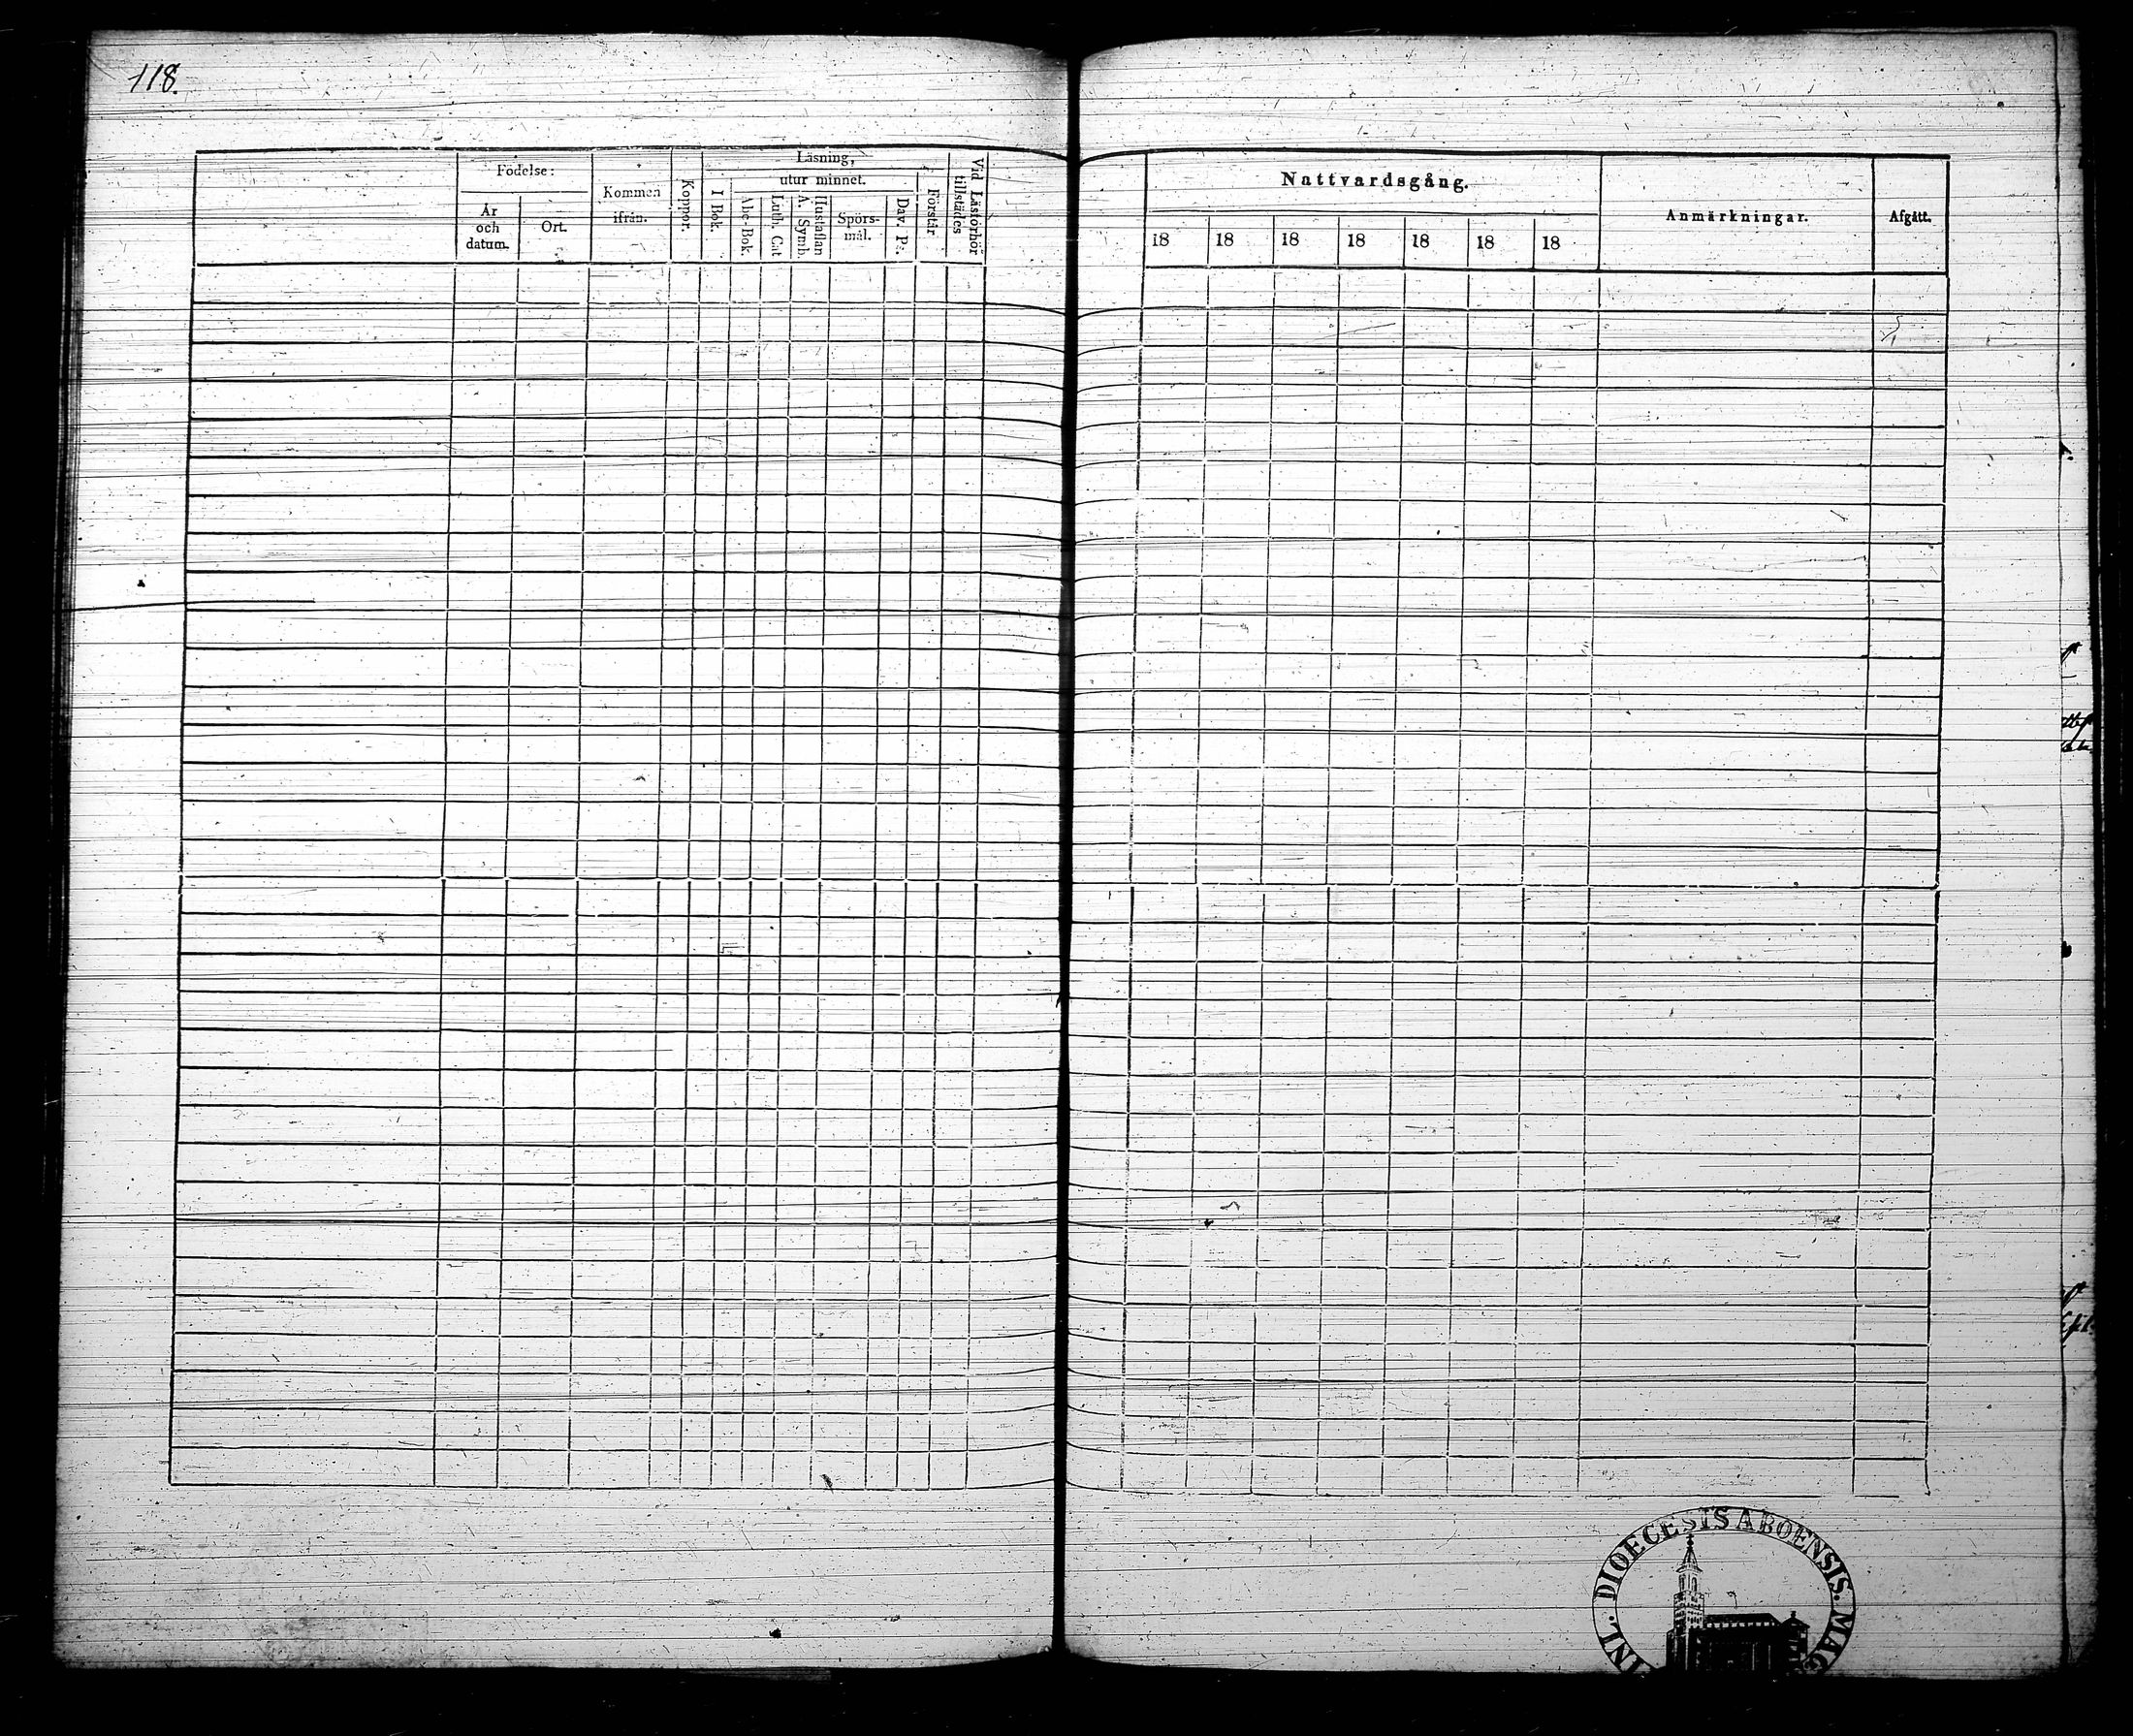 118.
Födelse:
År
och
datum.
Ort.
Kommen
ifrån.
Koppor.
Läsning,
utur minnet.
I Bok.
Abc-Bok.
Luth. Cat
Hustaflan
A. Symb.
Spörs-
mål.
Dav. Ps.
Förstår
Vid Läsförhör
tillstädes
Nattvardsgång.
18 18 18 18 18 18 18
Anmärkningar.
Afgått.
DIOECESIS ABOENSIS.